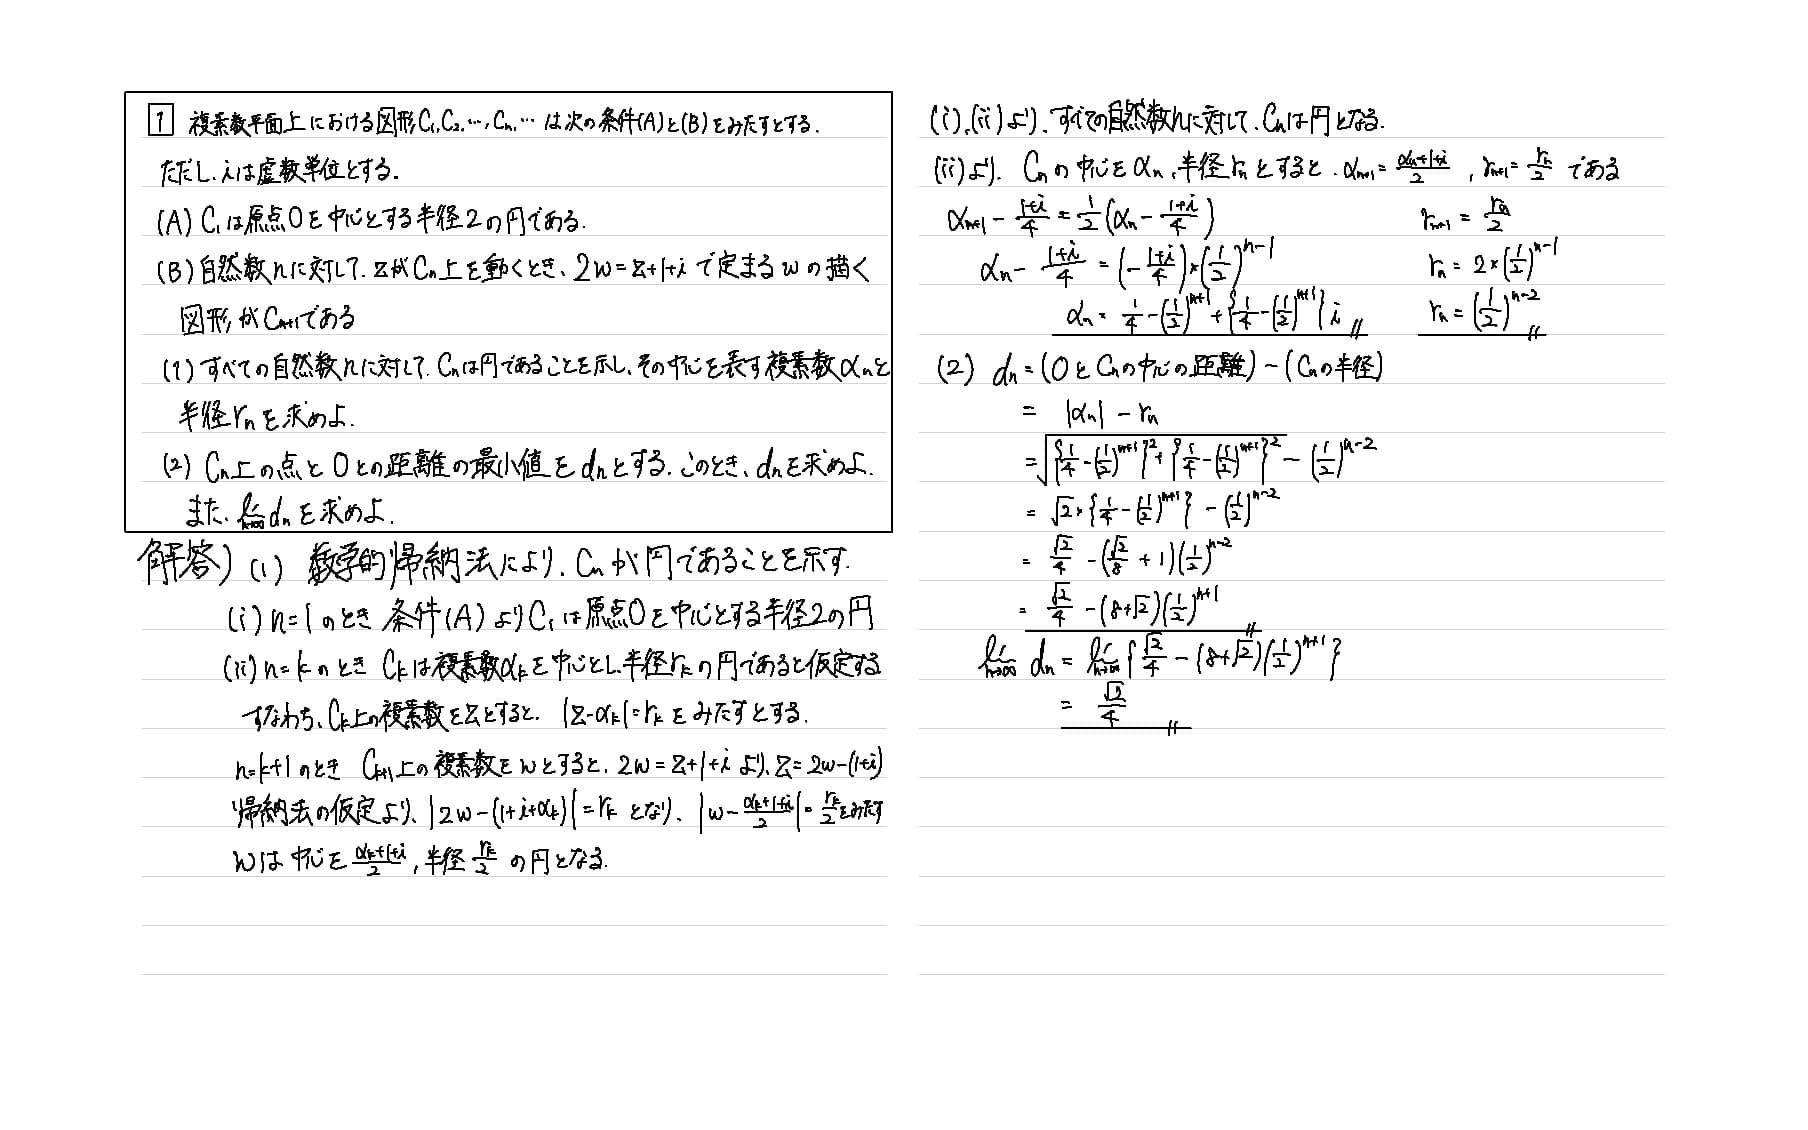 1 複素数平面上における図形C₁,C₂,…,Cₙ,… は次の条件(A)と(B)をみたすとする.
ただし、iは虚数単位とする.
(A) C₁は原点Oを中心とする半径2の円である.
(B) 自然数nに対して、zがCₙ上を動くとき、2w=z+1+i で定まるwの描く
図形がCₙ₊₁である
(1) すべての自然数nに対して、Cₙは円であることを示し、その中心を表す複素数αₙと
半径rₙを求めよ.
(2) Cₙ上の点とOとの距離の最小値をdₙとする.このとき、dₙを求めよ.
また、lim_{n→∞} dₙを求めよ.
解答) (1) 数学的帰納法により、Cₙが円であることを示す.
(i) n=1のとき 条件(A)よりC₁は原点Oを中心とする半径2の円
(ii) n=kのとき Cₖは複素数αₖを中心とし、半径rₖの円であると仮定する
すなわち、Cₖ上の複素数をzとすると、|z-αₖ|=rₖをみたすとする.
n=k+1のとき Cₖ₊₁上の複素数をwとすると、2w=z+1+iより、z=2w-(1+i)
帰納法の仮定より、|2w-(1+i+αₖ)|=rₖとなり、|w-(αₖ+1+i)/2|=rₖ/2をみたす
wは中心を(αₖ+1+i)/2, 半径rₖ/2の円となる.
(i),(ii)より、すべての自然数nに対して、Cₙは円となる.
(ii)より、Cₙの中心をαₙ、半径rₙとすると、αₙ₊₁=(αₙ+1+i)/2, rₙ₊₁=rₙ/2 である
αₙ₊₁-(1+i)/4=1/2(αₙ-(1+i)/4) rₙ₊₁=rₙ/2
αₙ-(1+i)/4=(-(1+i)/4)×(1/2)^{n-1} rₙ=2×(1/2)^{n-1}
αₙ=1/4-(1/2)^{n+1}+{1/4-(1/2)^{n+1}}i rₙ=(1/2)^{n-2}
(2) dₙ=(OとCₙの中心の距離)-(Cₙの半径)
=|αₙ|-rₙ
=√({1/4-(1/2)^{n+1}}²+{1/4-(1/2)^{n+1}}²)-(1/2)^{n-2}
=√2×{1/4-(1/2)^{n+1}}-(1/2)^{n-2}
=√2/4-(√2/8+1)(1/2)^{n-2}
=√2/4-(8+√2)(1/2)^{n+1}
lim_{n→∞} dₙ=lim_{n→∞}{√2/4-(8+√2)(1/2)^{n+1}}
=√2/4